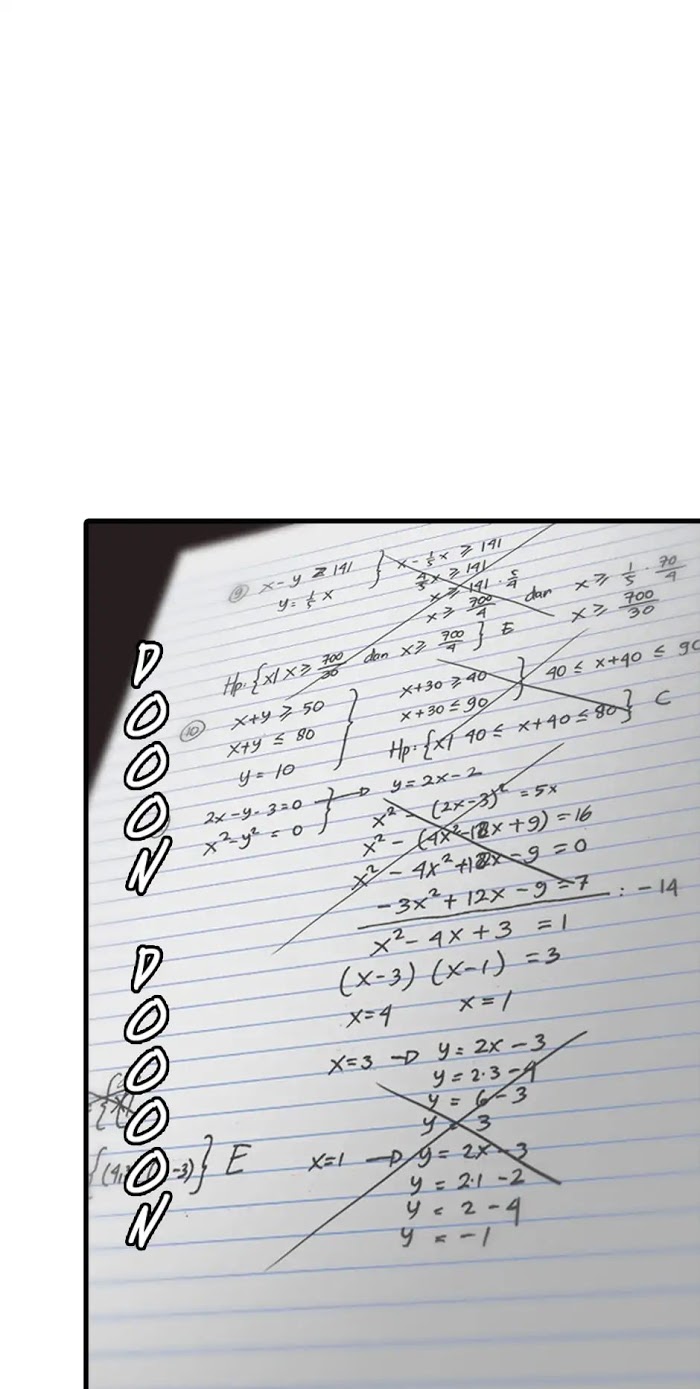 ⑨ x - y ≥ 141
y = 1/5 x
x - 1/5 x ≥ 141
4/5 x ≥ 141
x ≥ 141 · 5/4
x ≥ 700/4
dan
x ≥ 1/5 · 70/4
x ≥ 700/30
Hp: {x| x ≥ 700/30 dan x ≥ 700/4} E
⑩ x + y ≥ 50
x + y ≤ 80
y = 10
x + 30 ≥ 40
x + 30 ≤ 90
40 ≤ x + 40 ≤ 90
Hp: {x| 40 ≤ x + 40 ≤ 80} C
2x - y - 3 = 0
x² - y² = 0
y = 2x - 2
x² - (2x - 3)² = 5x
x² - (4x² - 12x + 9) = 16
x² - 4x² + 12x - 9 = 0
-3x² + 12x - 9 = 7 : -14
x² - 4x + 3 = 1
(x-3) (x-1) = 3
x = 4 x = 1
x = 3 → y = 2x - 3
y = 2·3 - 4
y = 6 - 3
y = 3
-3)} E
x = 1 → y = 2x - 3
y = 2·1 - 2
y = 2 - 4
y = -1
DOOON
DOOOON